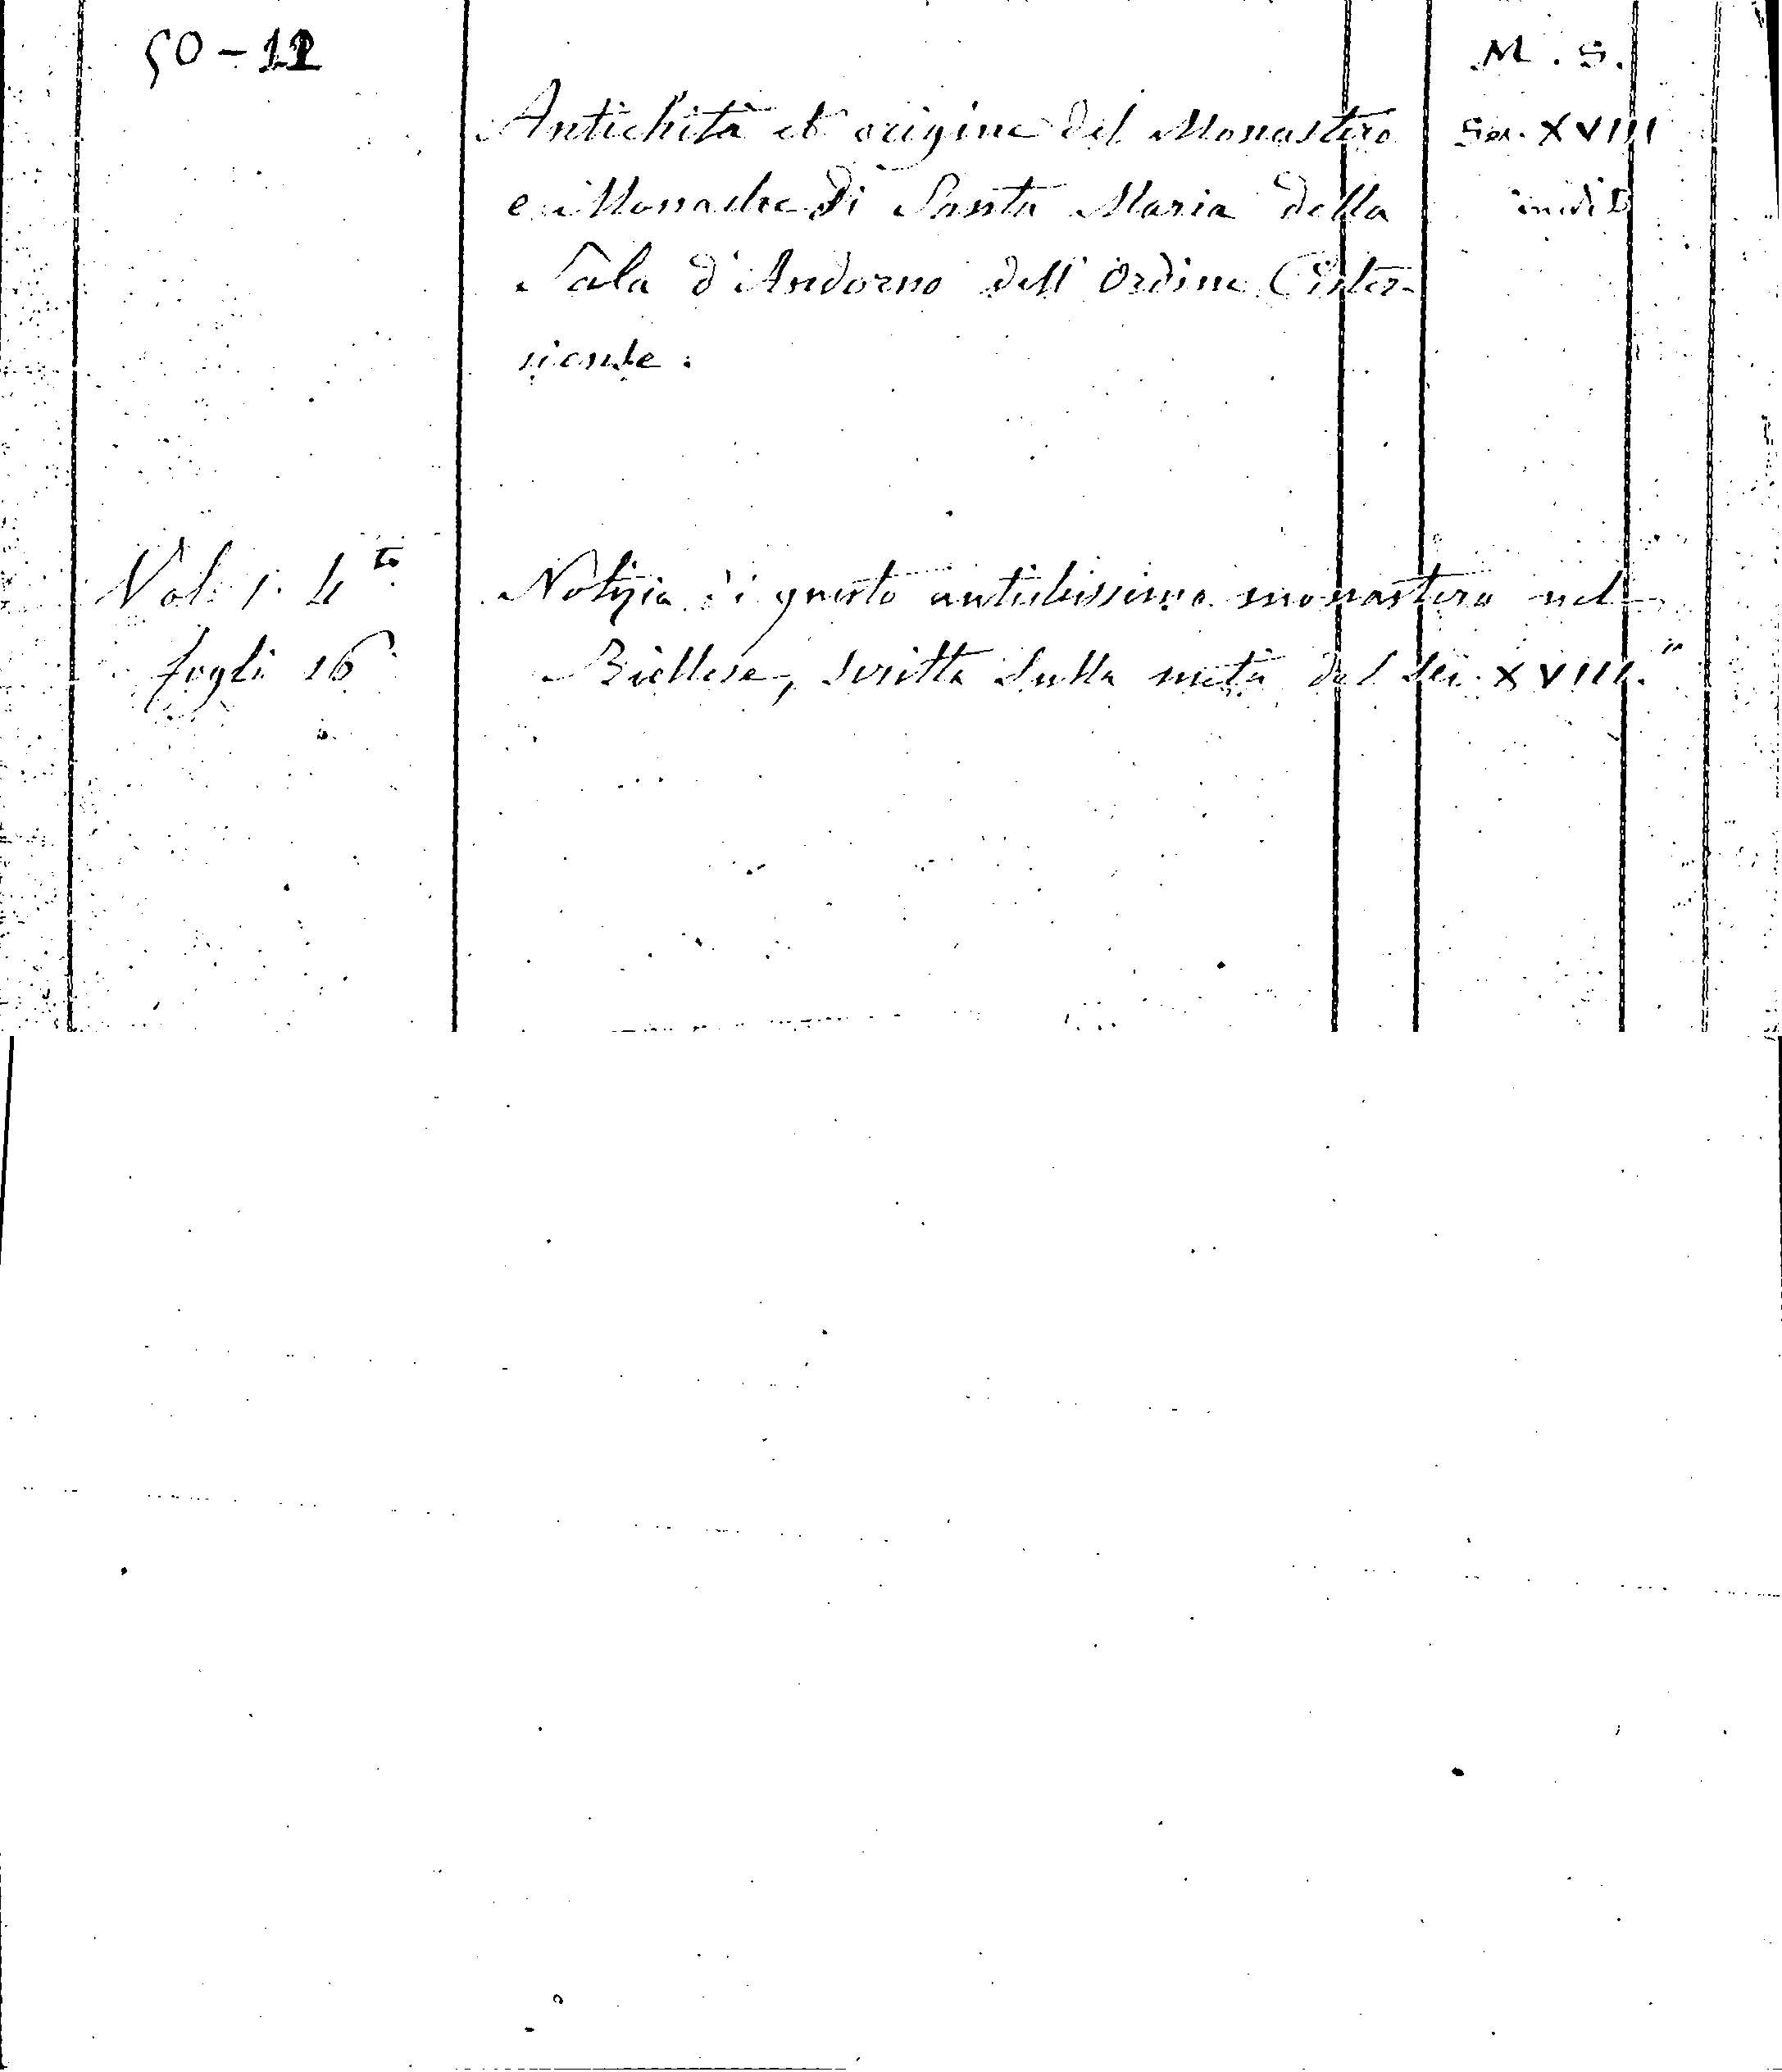 50-11
M. S.
Antichità et origine del Monastero
Sec. XVIII
e Monache di Santa Maria della
inedit
Sala d'Andorno dell'Ordine Cister-
ciente.
Vol. 1. 4to
Notizia di questo antichissimo monastero nel
fogli 16
Biellese, scritta sulla metà del Sec. XVIII.